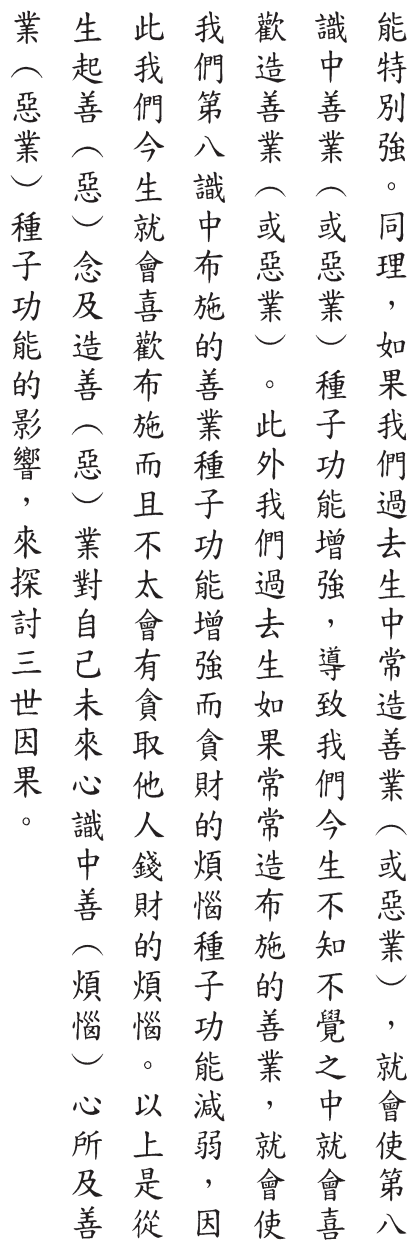 能特別強。同理，如果我們過去生中常造善業（或惡業），就會使第八
識中善業（或惡業）種子功能增強，導致我們今生不知不覺之中就會喜
歡造善業（或惡業）。此外我們過去生如果常常造布施的善業，就會使
我們第八識中布施的善業種子功能增強而貪財的煩惱種子功能減弱，因
此我們今生就會喜歡布施而且不太會有貪取他人錢財的煩惱。以上是從
生起善（惡）念及造善（惡）業對自己未來心識中善（煩惱）心所及善
業（惡業）種子功能的影響，來探討三世因果。